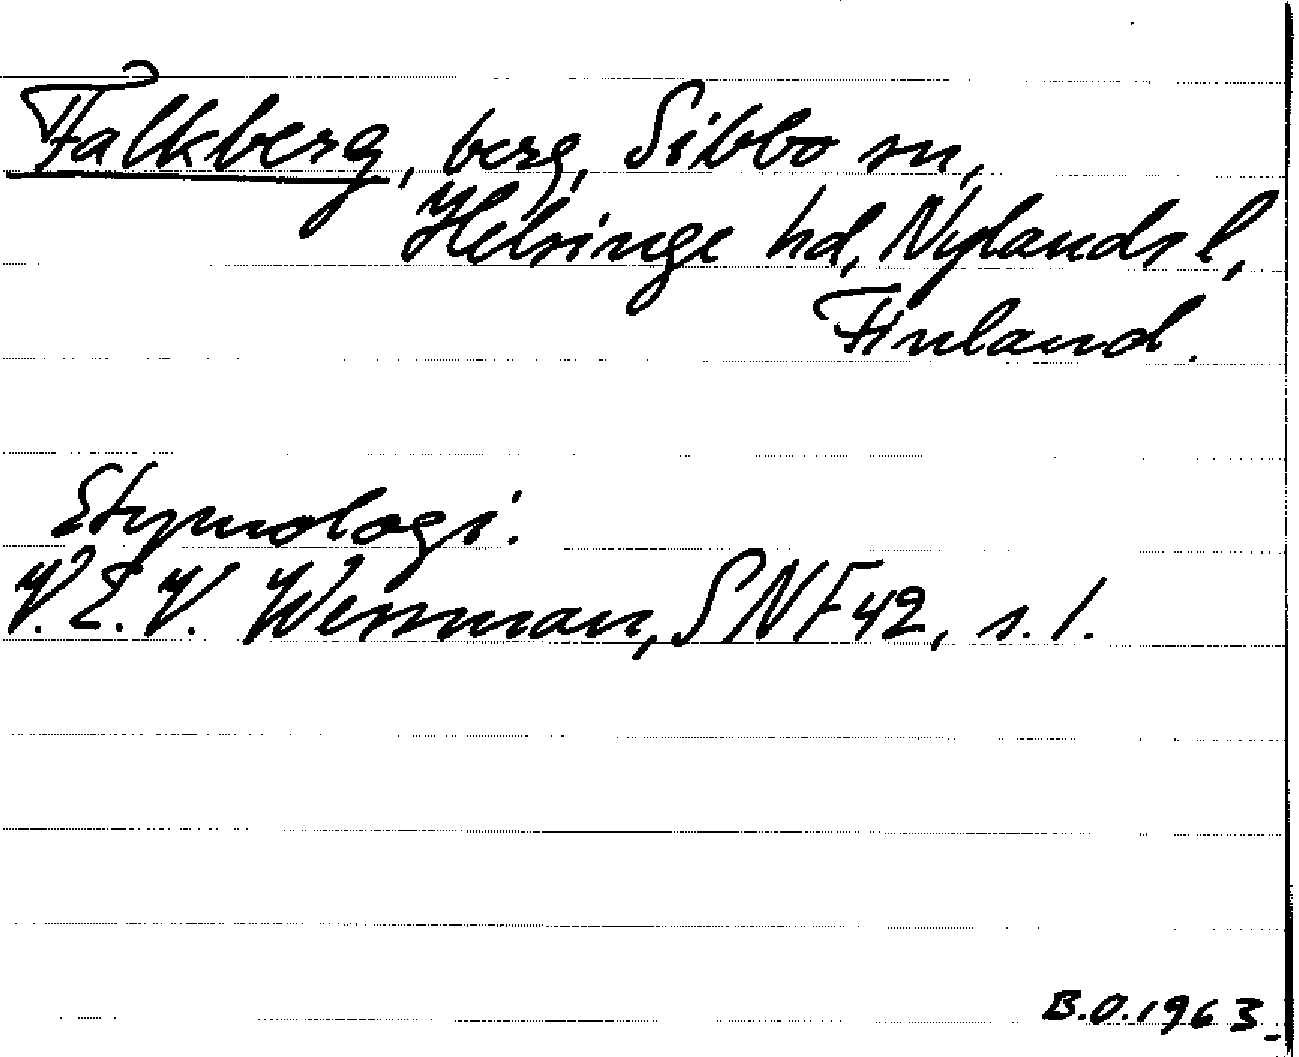 Falkberg, berg, Sibbo sn,
Helsinge hd, Nylands l,
Finland.
Etymologi.
V.E.V. Wessman, SNF 42, s. 1.
B.O. 1963.